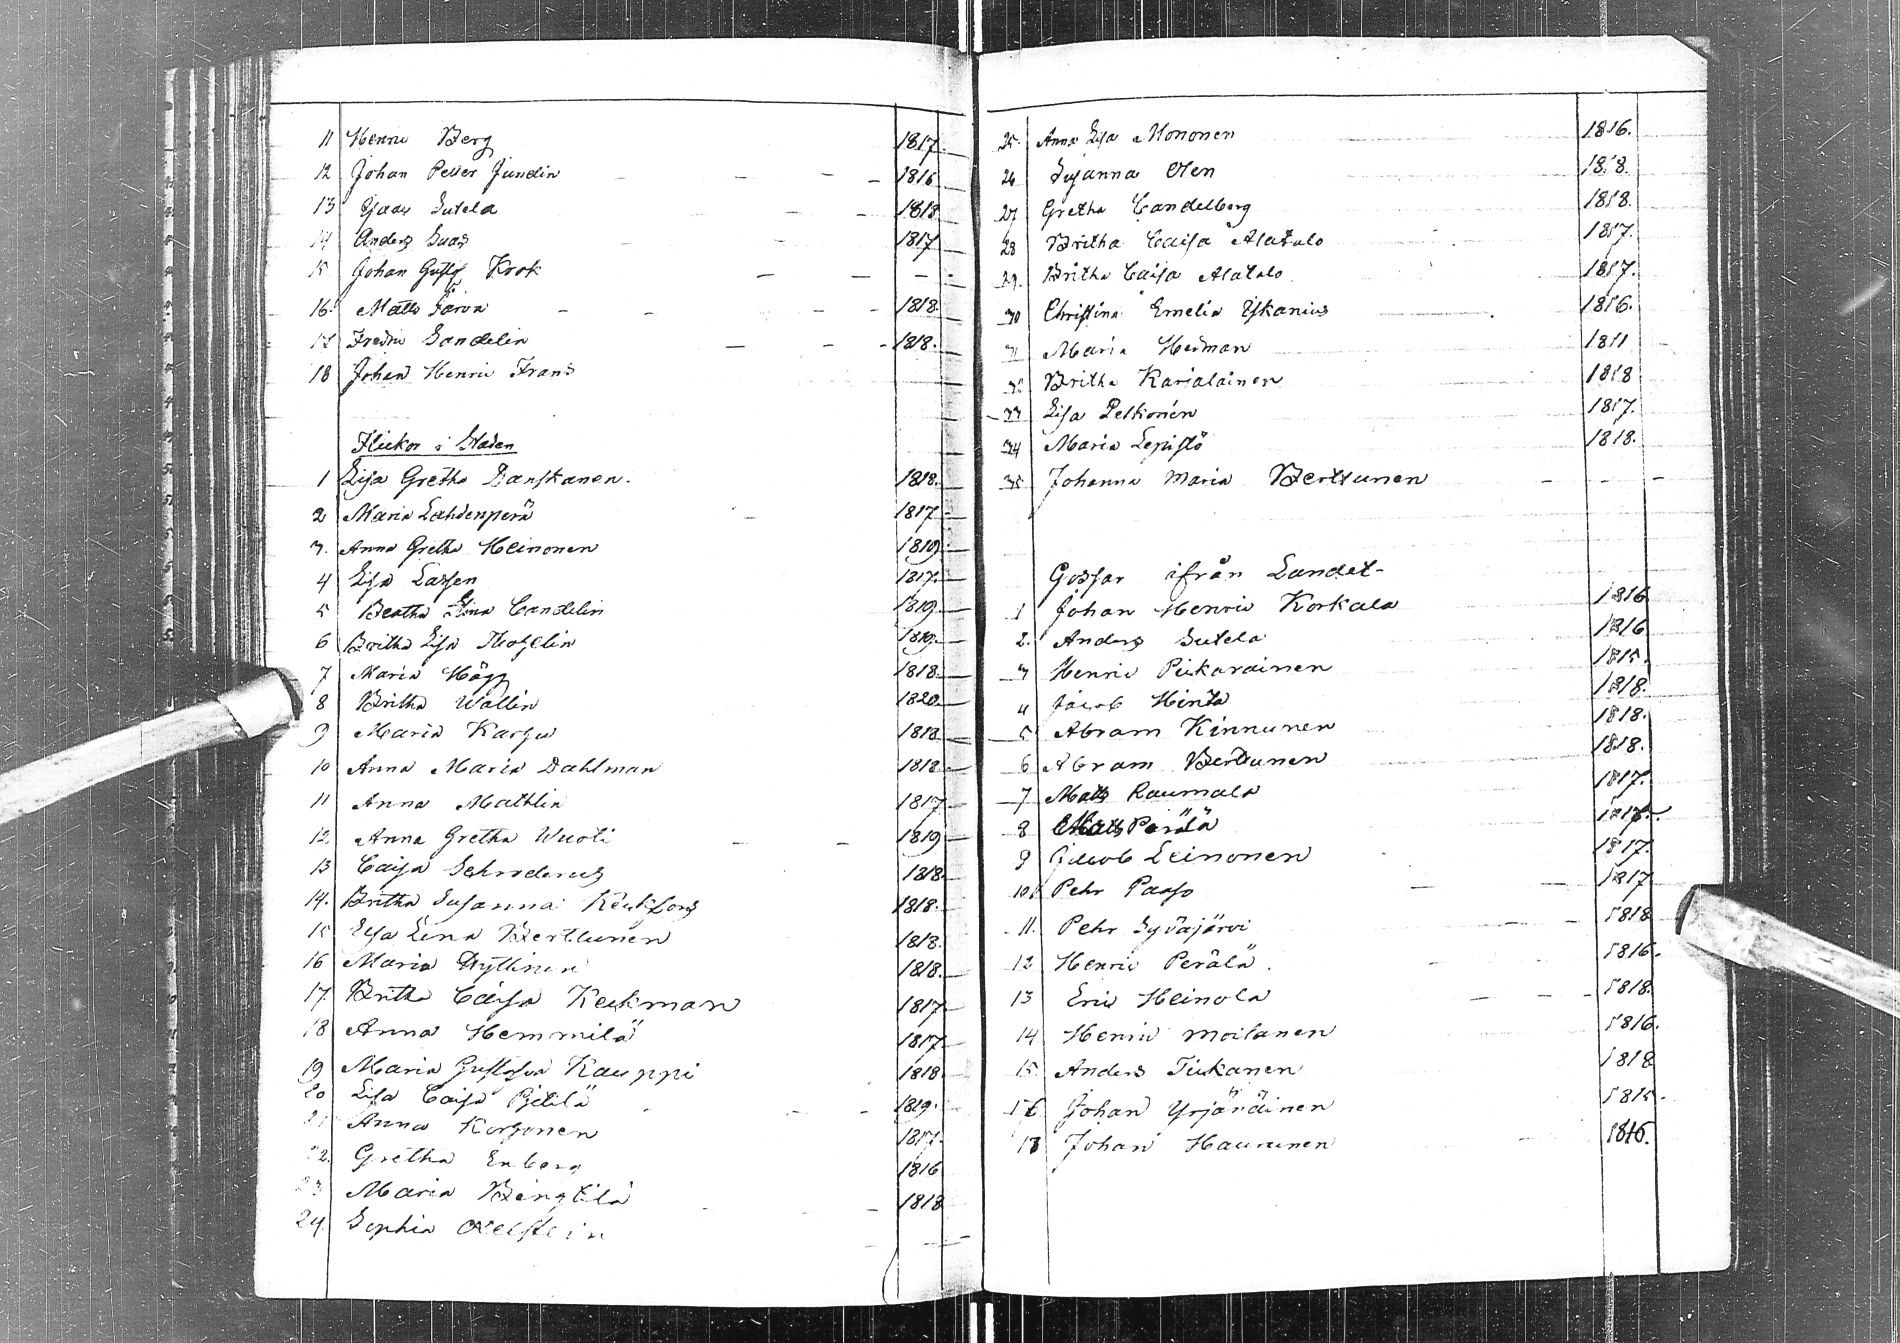 11 Henric Berg 1817.
12 Johan Petter Jundin 1816
13 Isaac Sutela 1818
14 Anders Saas 1817
15 Johan Gustf Krok
16. Matts Jarva 1818.
17 Fredric Sandelin 1818.
18 Johan Henric Frans
Flickor i Staden
1 Lisa Gretha Danskanen. 1818.
2 Maria Lahdenperä 1817
3. Anna Gretha Heinonen 1819
4 Lisa Lassen 1817.
5 Beatha Lina Candelin 1819.
6 Britha Lisa 1819.
7 Maria Hägg 1818.
8 Britha Wallin 1820.
9 Maria Karhu 1818
10 Anna Maria Dahlman 1818.
11 Anna Mathlin 1817
12 Anna Gretha Wuoti 1819
13 Caisa Schroderus 1818.
14. Britha Susanna 1818.
15 Lisa Lena Berttunen 1818.
16 Maria Hyttinen 1818.
17. Britha Caisa Keckman 1817
18 Anna Hemmilä 1817.
19 Maria Gustafva Kauppi 1818.
20 Lisa Caisa Pietilä 1819.
21 Anna Korhonen 1817.
22. Gretha Enberg 1816
23 Maria 1818
24. Sophia
25. Anna Lisa Mononen 1816.
26 Susanna Oten 1818.
27 Gretha Candelberg 1818.
28 Britha Caisa Alatalo 1817.
29. Britha Caisa Alatalo 1817.
30 Christina Emelia Eskanius 1816.
31 Maria Hedman 1811
32 Britha Karialainen 1818
33 Lisa Pelkonen 1817.
34 Maria Lepistö 1818.
35 Johanna Maria Berttunen
Gossar ifrån Landet-
1 Johan Henric Korkala 1816
2. Anders Sutela 1816
3 Henric Pikarainen 1815.
4 Jacob Hinta 1818.
5 Abram Kinnunen 1818.
6 Abram Berttunen 1818.
7 Matts Raumala 1817.
8 Matts Perälä 1817.
9 Jacob Leinonen 1817.
10 Pehr Paaso 1817
11. Pehr Syväjärvi 1818
12 Henric Perälä. 1816.
13 Eric Heinola 1818.
14 Henric Moilanen 1816.
15 Anders Tiikanen 1818
16 Johan Yrjänäinen 1815.
17 Johan Haurunen 1816.